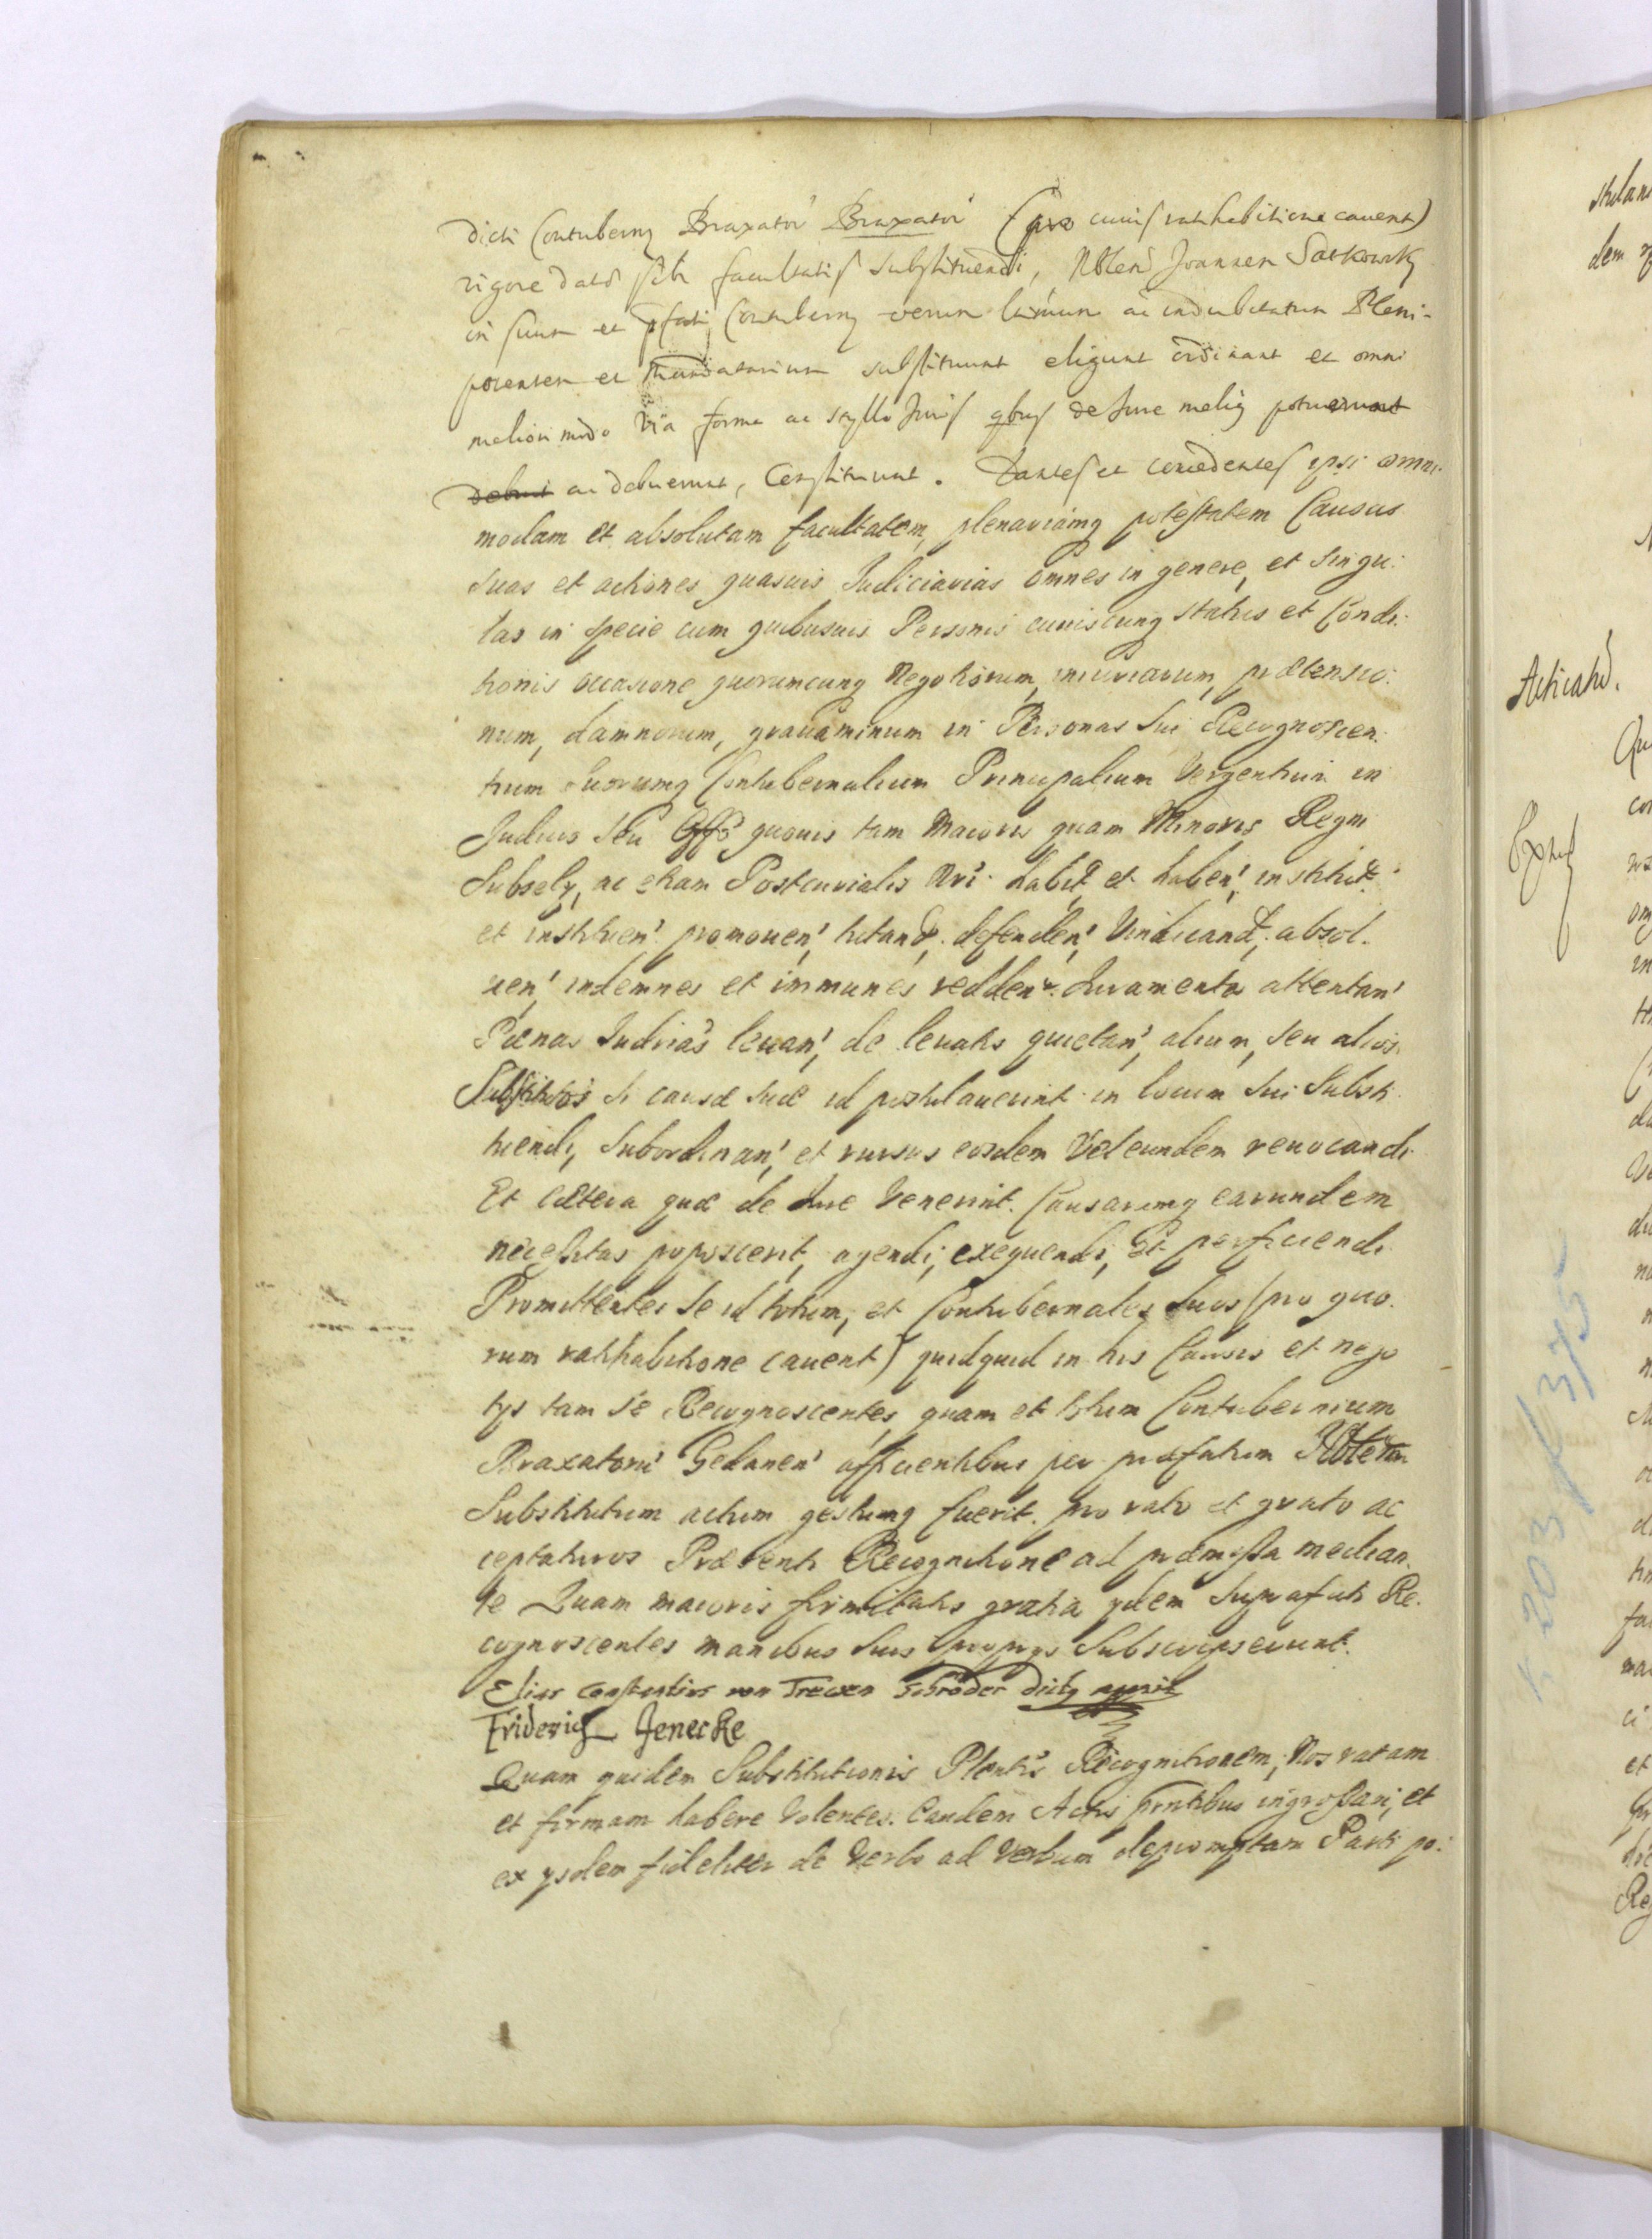 dicti Contubernÿ Braxator' Braxator' (pro cuius ratihabitione cavent)
vigore datae sibi facultatis substituendi, Nblem Joannem Satkowsky
in suum et pfati Contubernÿ verum ltimum ac indubitatum Pleni-
potentem et Mandatarium substituunt eligunt ordinant et omni
meliori modo via forma ac stylo Juris qbus de Jure melius potuerunt
debent ac debuerunt, Constituunt. Dantes et concedentes ipsi omni-
modam et absolutam facultatem, plenariamq potestatem Causas
suas et actiones quasuis Judiciarias omnes in genere, et singu-
las in specie cum quibusuis Personis cuiuscunq status et Condi-
tionis occasione quorumcunq Negotiorum, iniuriarum, prætensio-
num, damnorum, grauaminum in Personas sui Recognoscen-
tium suorumq Contubernalium Principalium Vergentium in
Judicio seu Offo quouis tam Maioris quam Minoris Regni
Subselÿ, ac etiam Postcurialis Nri habit et haben', institut
et instituen' promouen', tutand, defenden', Vindicand, absol-
uen', indemnes et immunes redden'. Juramenta attentan'
Pænas Judrias leuan', de leuatis quietan', alium, seu alios
Substitutos si causæ suæ id postulauerint in locum sui Substi-
tuendi, Subordinan', et rursus eosdem Vel eundem reuocandi
Et cætera quæ de Jure Venerint. Causarumq earundem
necessitas poposcerit, agendi, exequendi, Et perficiendi
Promittentes se id totum, et Contubernales suos (pro quo-
rum ratihabitione cauent) quidquid in his Causis et nego
tÿs tam se Recognoscentes, quam et totum Contubernium
Braxatoru' Gedanen' afficientibus per præfatum Nblem
Substitutum actum gestumq fuerit, pro rato et grato ac
ceptaturos Præsenti Recognitione ad præmissa median-
te Quam maioris firmitatis gratia ÿdem Suprafati Re-
cognoscentes manibus suis proprÿs Subscripserunt.
Elias Constantius von Treuen Schröder dictq mppria
Friderich Jenecke
Quam quidem Substitutionis Plentis Recognitionem, Nos ratam
et firmam habere Volentes. Eandem Actis pntibus ingrossari, et
ex ÿsdem fideliter de Verbo ad Verbum depromptam Parti po-
Acticatio.
203 / 375